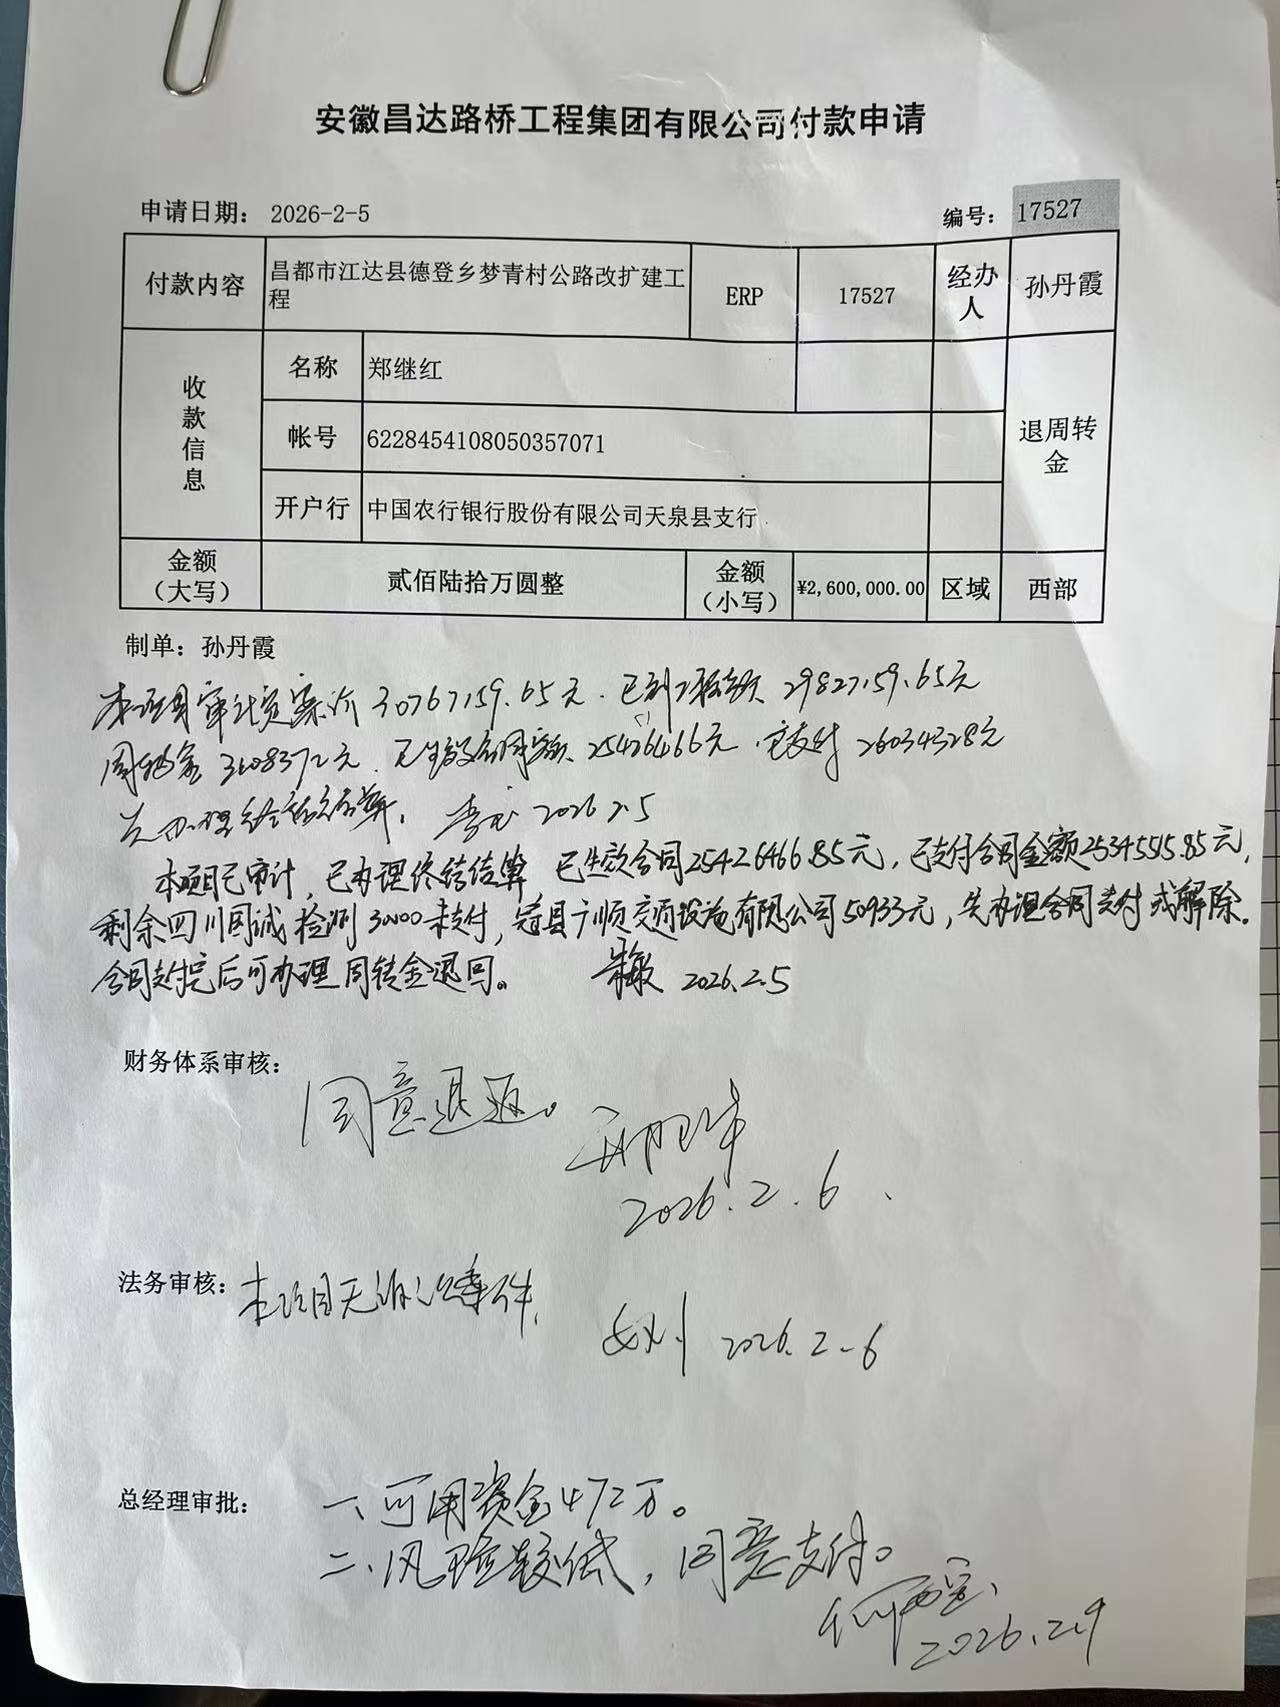 安徽昌达路桥工程集团有限公司付款申请
申请日期： 2026-2-5 编号： 17527
付款内容 昌都市江达县德登乡梦青村公路改扩建工程 ERP 17527 经办人 孙丹霞
收款信息 名称 郑继红 退周转金
帐号 6228454108050357071
开户行 中国农行银行股份有限公司天泉县支行
金额（大写） 贰佰陆拾万圆整 金额（小写） ¥2,600,000.00 区域 西部
制单： 孙丹霞
本项目审计定案价30767159.65元．已到工程款29827159.65元
周转金3108372元．已生效合同额25426466元．已支付26034328元
先办理终结结算． 2026.2.5
本项目已审计，已办理终结结算，已生效合同25426466.85元，已支付合同金额25345515.85元，
剩余四川国诚检测30000未支付，冠县广顺交通设施有限公司50933元，先办理合同支付或解除。
合同支付完后可办理周转金退回。 2026.2.5
财务体系审核：
同意退返。
2026.2.6
法务审核： 本项目无诉讼案件．
2026.2-6
总经理审批： 一、可用资金472万。
二、风险较低，同意支付。
2026.2.9